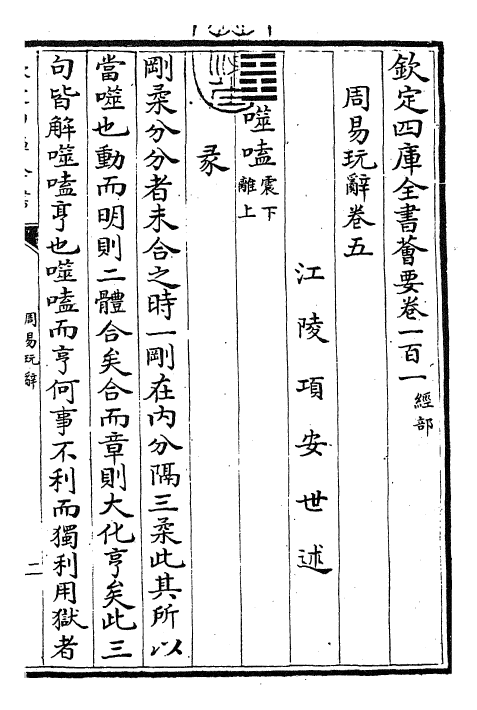 欽定四庫全書薈要卷一百一 經部
周易玩辭卷五
江陵項安世述
噬嗑 震下離上
彖
剛柔分分者未合之時一剛在内分隔三柔此其所以
當噬也動而明則二體合矣合而章則大化亨矣此三
句皆解噬嗑亨也噬嗑而亨何事不利而獨利用獄者
周易玩辭
二